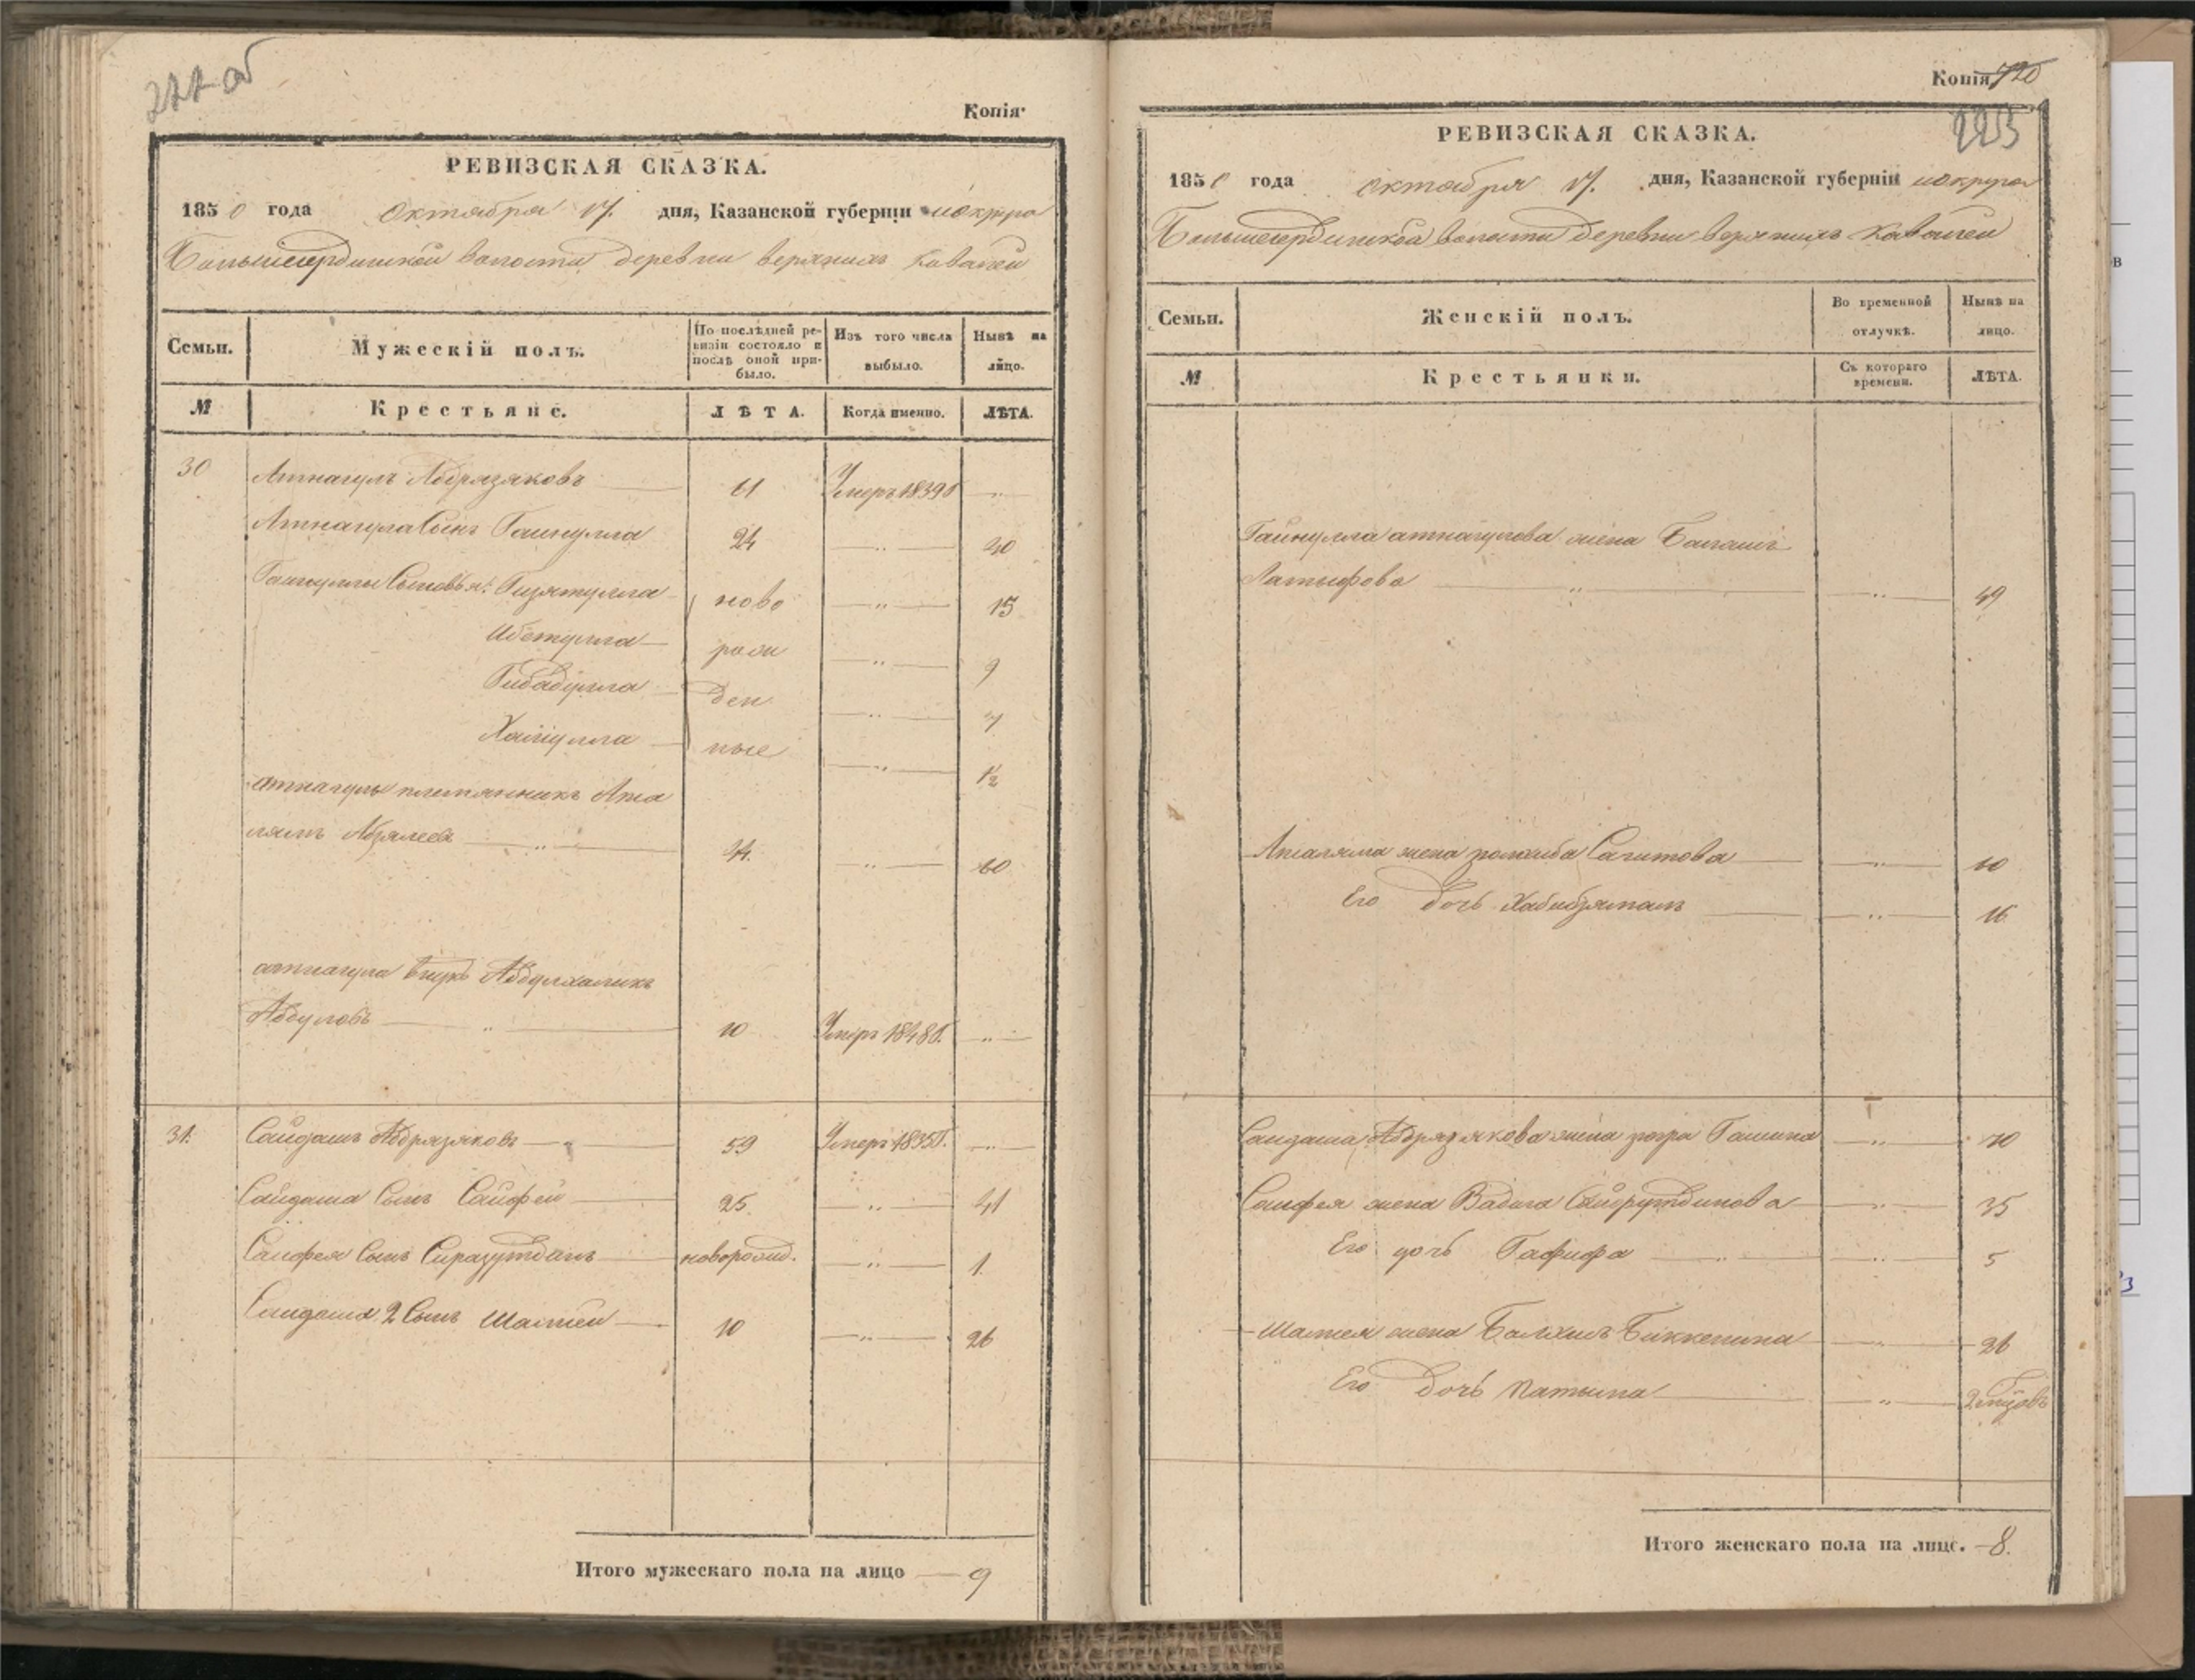 277 об
Копія
РЕВИЗСКАЯ СКАЗКА.
1850 года октября 17. дня, Казанской губерніи
Большесердинской волости деревни верхнихъ Ковалей
Семьи.
Мужескій полъ.
По послѣдней ревизіи состояло и послѣ оной прибыло.
Изъ того числа выбыло.
Нынѣ на лицо.
М
Крестьяне.
ЛѢТА.
Когда именно.
ЛѢТА.
30 Атнагулъ Абдрязяковъ 61 Умеръ 1839г
Атнагула сынъ Гайнулла 24 40
Гайнуллы сыновья: Гизятулла ново 15
Ибетулла рож 9
Гибадулла ден 7
Хайрулла ные 1/2
атнагулы племянникъ
44. 60
атнагула внукъ Абдулхаликъ
Абдуловъ 10 Умеръ 1848г.
31. Сайдашъ Абдрязяковъ 59 Умеръ 1835г.
Сайдаша сынъ Сайфей 25. 41
Сайфея сынъ Сиразутдинъ новорожд. 1.
Сайдаша 2 сынъ 10 26
Итого мужескаго пола на лицо 9
Копія 720
РЕВИЗСКАЯ СКАЗКА.
1850 года октября 17. дня, Казанской губерніи
Большесердинской волости деревни верхнихъ Ковалей
Семьи.
Женскій полъ.
Во временной отлучкѣ.
Нынѣ на лицо.
М
Крестьянки.
Съ котораго времени.
ЛѢТА.
Гайнулла атнагулова жена
Латыфова 49
жена Сагитова
Его дочь Хабибзямалъ 16
Сайдаша Абдрязякова жена 70
Сайфея жена 35
Его дочь Гафифа 5
жена Биккенина 26
Его дочь
Итого женскаго пола на лицо. 8.